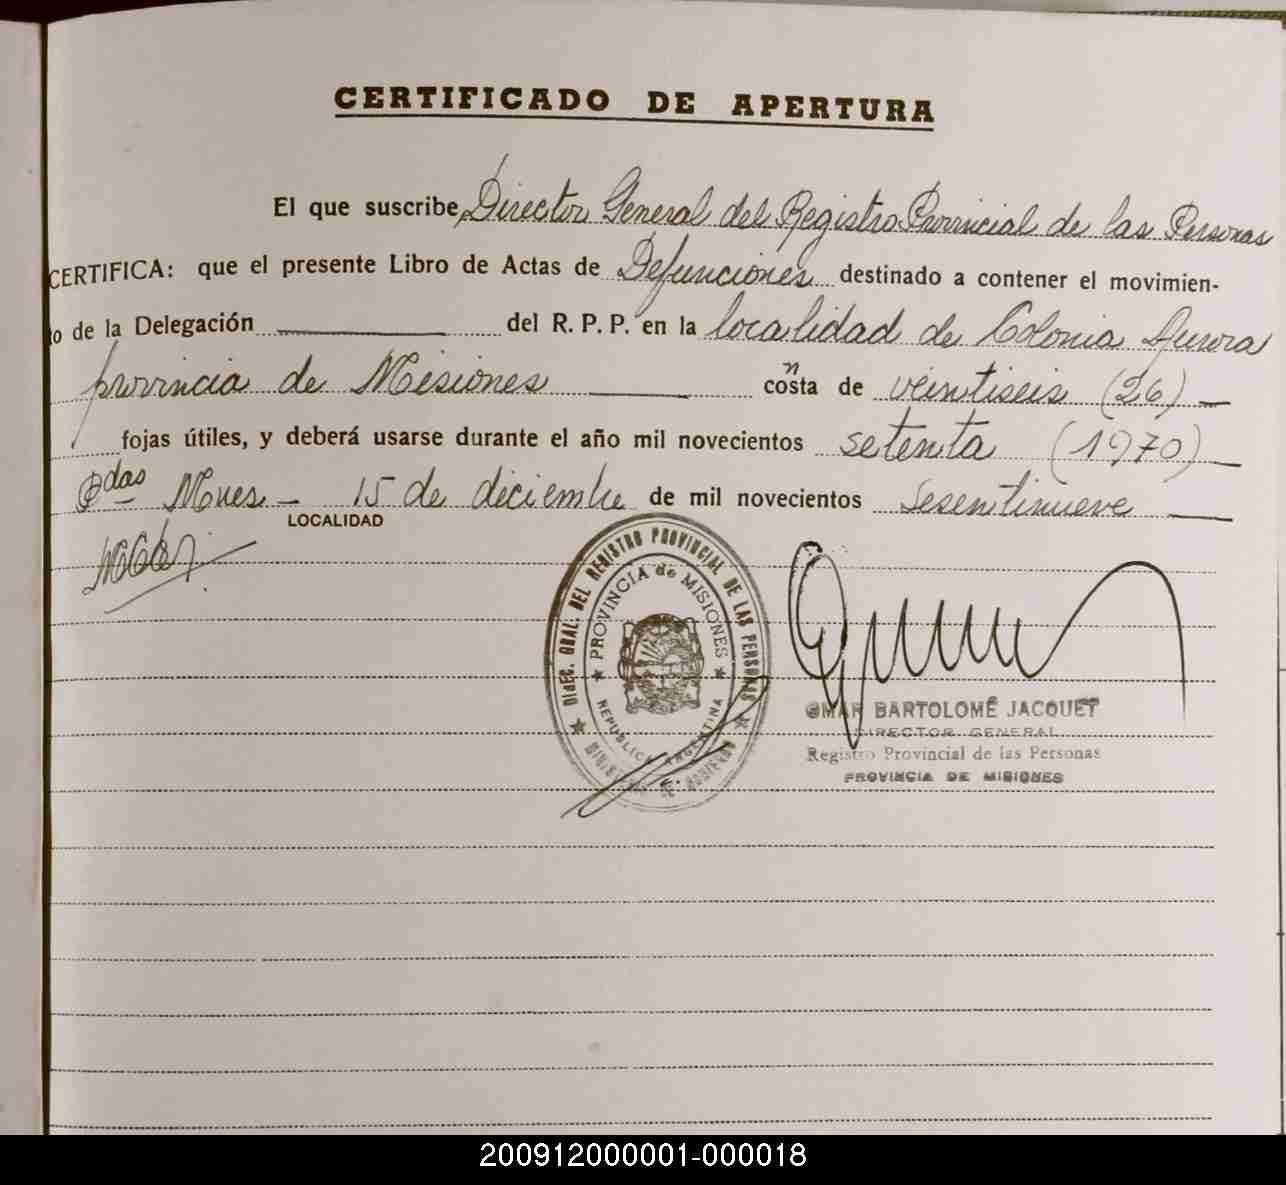 CERTIFICADO DE APERTURA
El que suscribe, Director General del Registro Provincial de las Personas
CERTIFICA: que el presente Libro de Actas de Defunciones destinado a contener el movimien-
to de la Delegación del R. P. P. en la localidad de Colonia Aurora
provincia de Misiones consta de veintiseis (26)
fojas útiles, y deberá usarse durante el año mil novecientos setenta (1970)
Pdas Mnes - 15 de diciembre de mil novecientos sesentinueve
LOCALIDAD
DIREC. GRAL. DEL REGISTRO PROVINCIAL DE LAS PERSONAS
PROVINCIA de MISIONES
REPUBLICA ARGENTINA
MINISTERIO DE GOBIERNO
OMAR BARTOLOMÉ JACQUET
DIRECTOR GENERAL
Registro Provincial de las Personas
PROVINCIA DE MISIONES
200912000001-000018